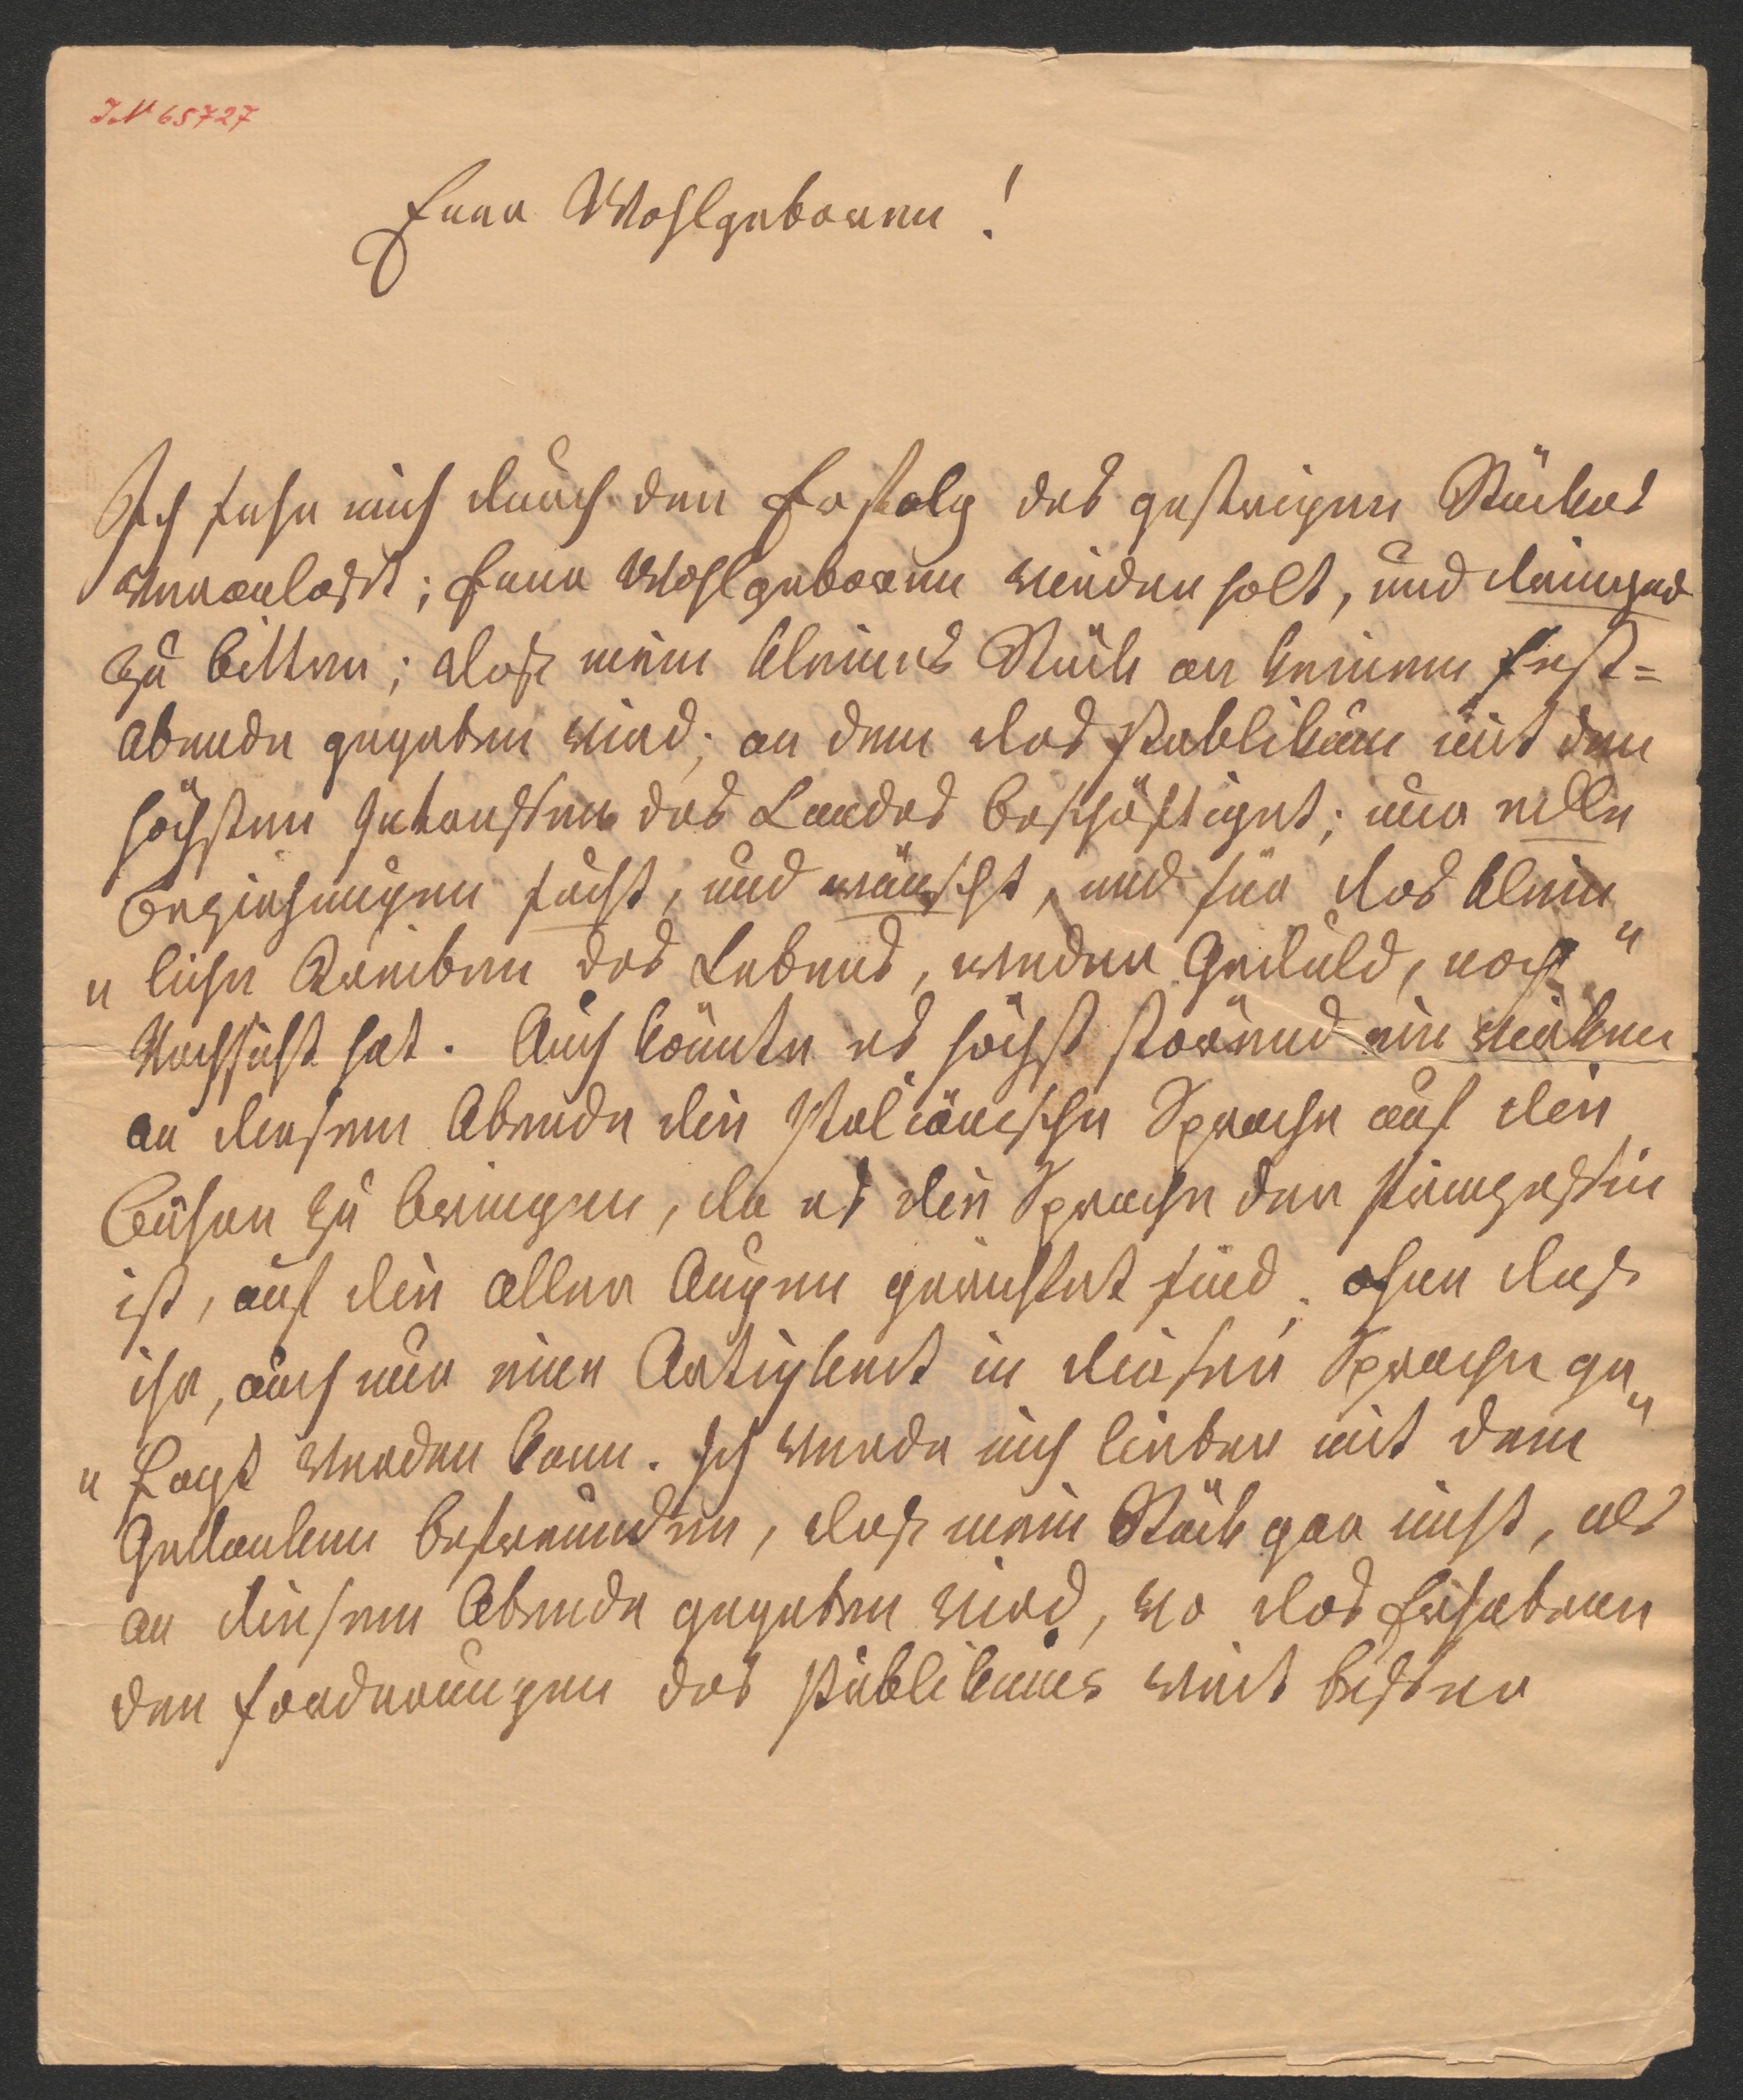 IN 65727
Euer Wohlgeboren!
Ich sehe mich durch den Erfolg des gestrigen Stückes
veranlaßt; Euer Wohlgeboren wiederholt, und dringend
zu bitten; daß mein kleines Stück an keinem Fest=
abende gegeben wird; an dem das Publikum mit den
höchsten Intereßen des Landes beschäftiget; nur edle
Beziehungen sucht, und wünscht, und für das klein„
„liche Treiben des Lebens, weder Geduld, noch
Nachsicht hat. Auch könnte es höchst störend ein wirken
an diesem Abende die Italiänische Sprache auf die
Bühne zu bringen, da es die Sprache der Prinzeßin
ist, auf die aller Augen gerichtet sind; ohne daß
ihr, auch nur eine Artigkeit in dieser Sprache ge„
„sagt werden kann. Ich werde mich lieber mit dem
Gedanken befreunden, daß mein Stück gar nicht, als
an diesem Abende gegeben wird, wo das Erhabene
den Forderungen des Publikums weit beßer